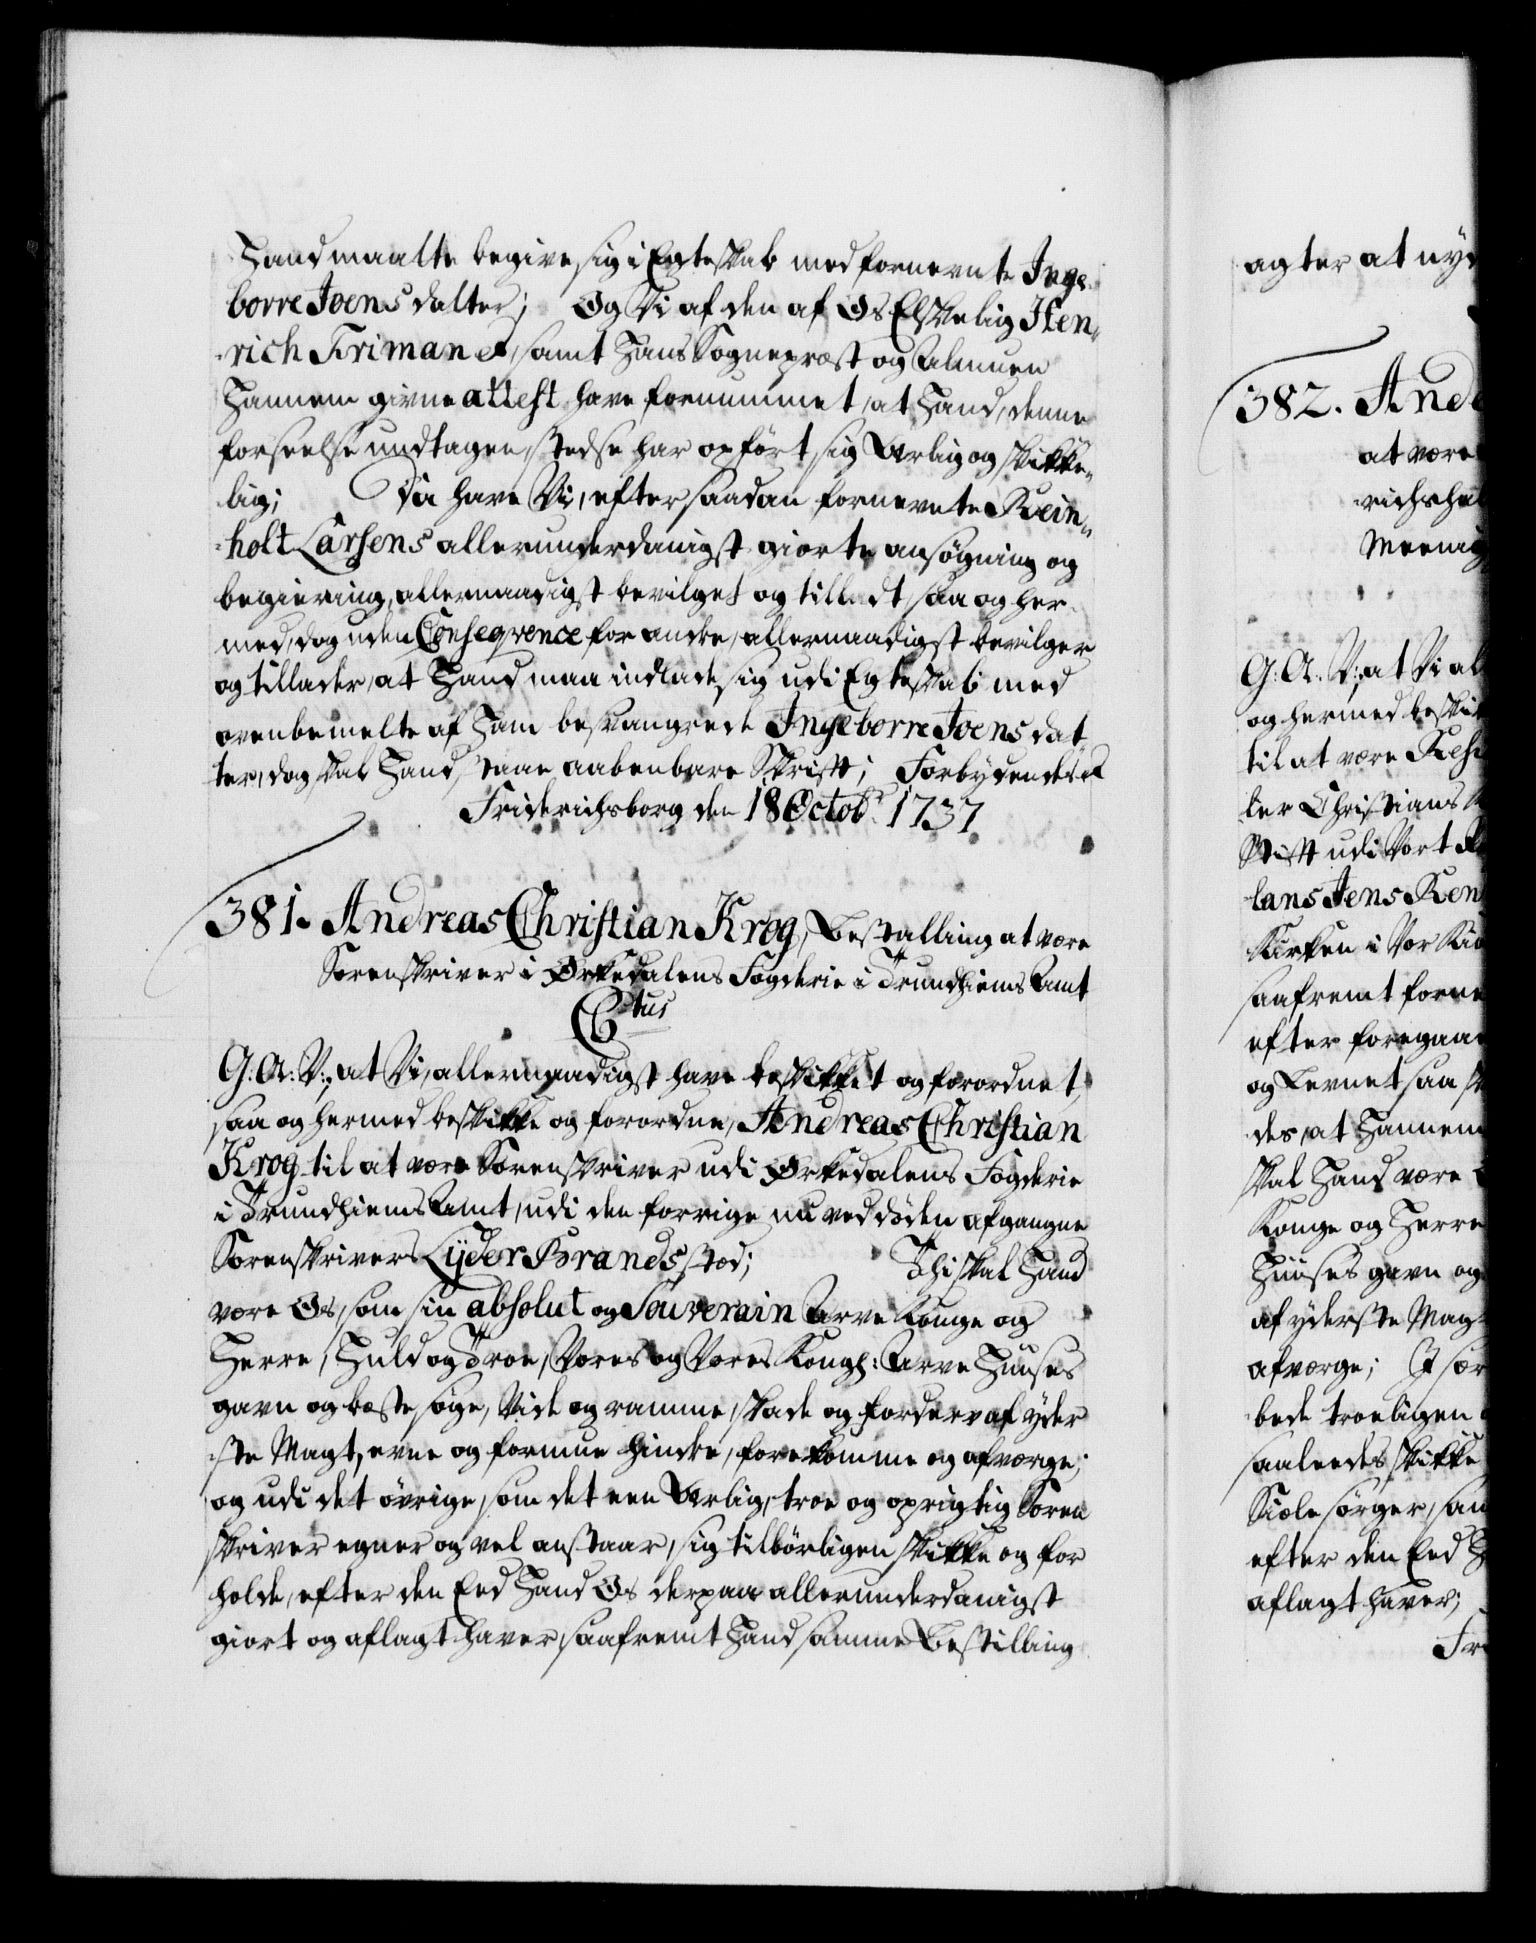 Hand maatte begive sig i Egteskab med fornevnte Inge-
borre Joensdatter; Og Vi af den af Os Elskelig Hen-
rich Frimanes, samt Hans Sognepræst og Almuen
Hannem givne attest have fornummet, at Hand, denne
forseelse undtagen, stedse har opført sig Ærlig og skikke-
lig; Da have Vi, efter saadan fornevnte Rein-
holt Larsens allerunderdanigst giorte ansøgning og
begiering, allernaadigst bevilget og tilladt, saa og her-
med, dog uden Conseqvence for andre, allernaadigst bevilger
og tillader, at Hand maa indlade sig udi Egteskab med
ovenbemelte af Ham besvangrede Ingeborre Joensdat
ter, dog skal Hand staae aabenbare Skrift; Forbydendes
Friderichsborg den 18 Octobr 1737
381. Andreas Christian Krog, Bestalling at være
Sorenskriver i Ørkedalens Fogderie i Trundhiems Amt
Ctus
G: A: V:, at Vi, allernaadigst have beskikket og forordnet,
saa og hermed beskikke og forordne, Andreas Christian
Krog til at være Sorenskriver udi Ørkedalens Fogderie
i Trundhiems Amt, udi den forrige nu ved døden afgangne
Sorenskrivers Lyder Brands stæd; Thi skal Hand
være Os, som sin absolut og Souverain Arve Konge og
Herre, Huld og Troe, Vores og Vores Kongl: Arve Huuses
gavn og beste søge, Vide og ramme, skade og forderv af yder
ste Magt, evne og formue hindre, forekomme og afværge;
og udi det øvrige, som det een Ærlig, troe og oprigtig Soren
skriver egner og vel anstaar, sig tilbørligen skikke og for
holde, efter den Eed Hand Os derpaa allerunderdanigst
giort og aflagt haver, saafremt Hand samme Bestilling
agter at nyd
382. And
at være
richshal
Meenig
G: A: V:, at Vi al
og hermed beskik
til at være Resi
ter Christians
Stift udi Vort R
lans Jens Ren
Kirken i Vor Kiø
saafremt forne
efter foregaae
og Levnet saa
des, at Hannem
skal Hand være
Konge og Herre
Huuses gavn og
af yderste Mag
afværge; I sær
bede troeligen
saaledes skikke
Siæle sørger, saa
efter den Eed H
aflagt haver;
Fri